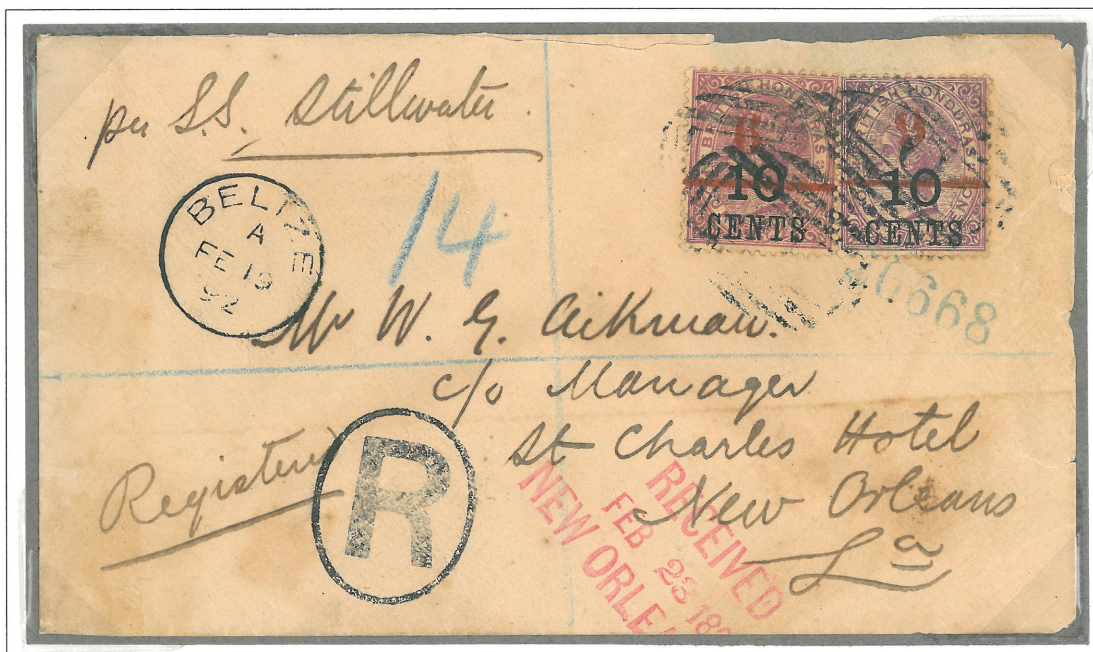 per S.S. Stillwater.
BRITISH HONDURAS
6
10
CENTS
BRITISH HONDURAS
9
10
CENTS
BELIZE
A
FE 19
92
14
0668
Mr W. G. Aikman.
c/o Manager
St Charles Hotel
New Orleans
La
Registered
R
RECEIVED
FEB 23 189
NEW ORLEA